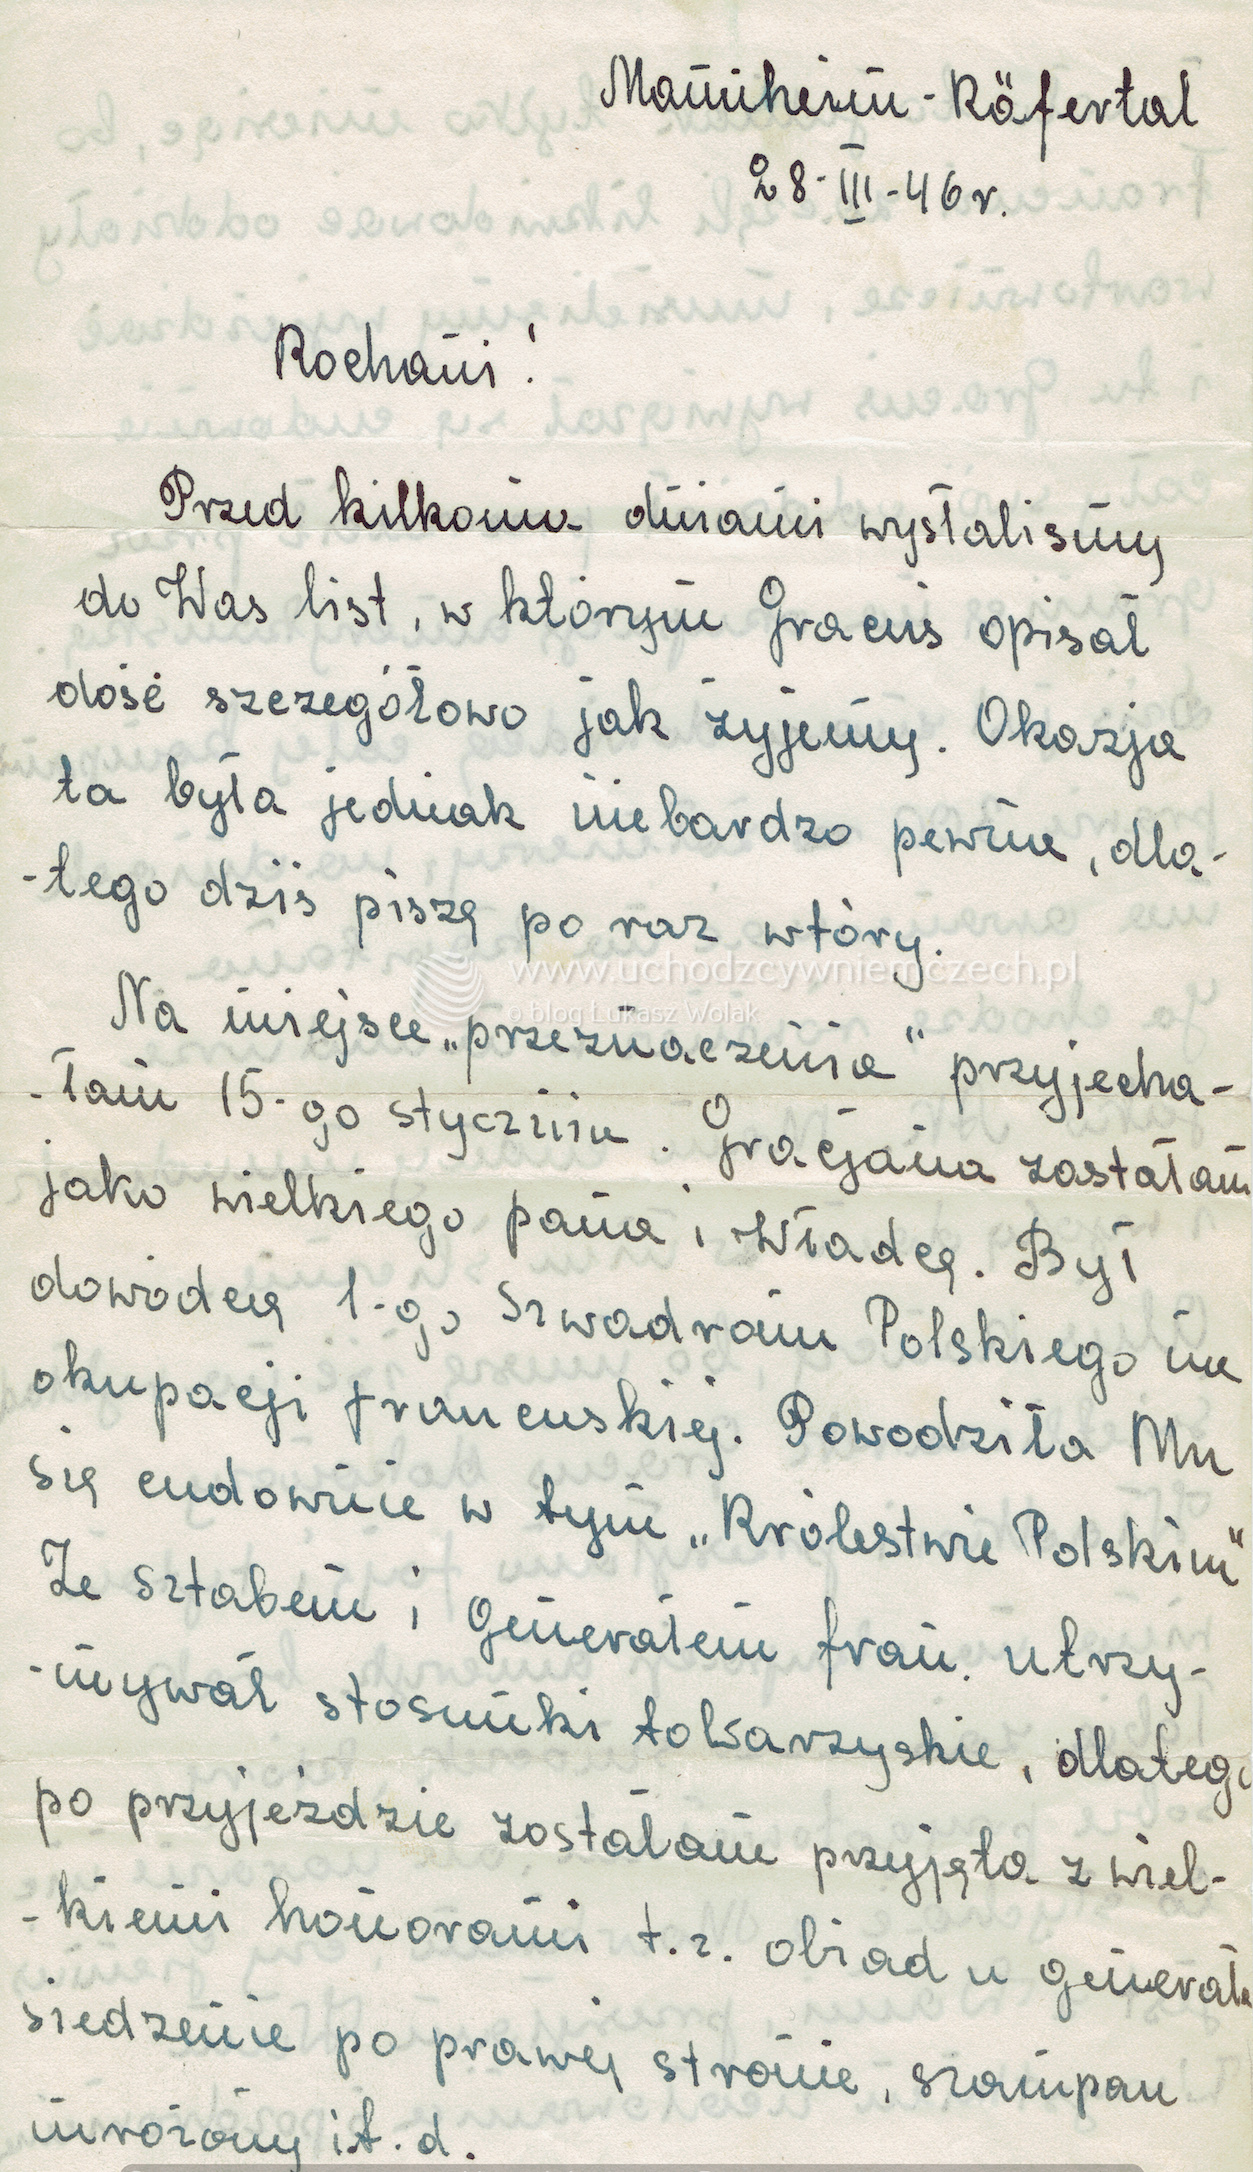 Mannheim - Käfertal
28-III-46 r.
Kochani!
Przed kilkoma dniami wysłaliśmy
do Was list, w którym Gracuś opisał
dość szczegółowo jak żyjemy. Okazja
ta była jednak niebardzo pewna, dla-
-tego dziś piszę po raz wtóry.
www.uchodzcywniemczech.pl
© blog Łukasz Wolak
Na miejsce „przeznaczenia" przyjecha-
-łam 15-go stycznia. Gracjana zastałam
jako wielkiego pana i Władcę. Był
dowódcą 1-go Szwadronu Polskiego na
okupacji francuskiej. Powodziła Mu
się cudownie w tym „Królestwie Polskim"
Ze sztabem i Generałem fran. utrzy-
-mywał stosunki towarzyskie, dlatego
po przyjeździe zostałam przyjęta z wiel-
-kiemi honorami t.z. obiad u generała
siedzenie po prawej stronie, szampan
mrożony i t. d.